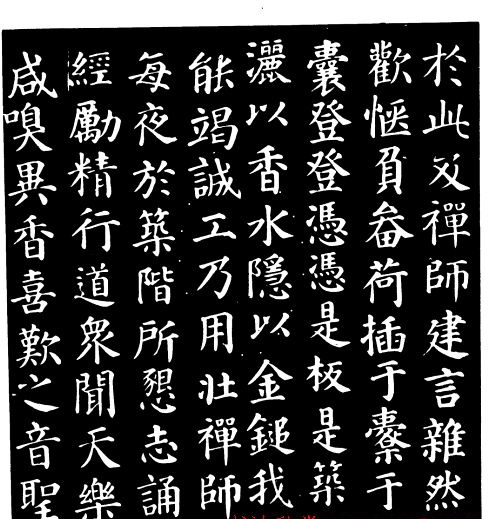 於此及禪師建言雜然
歡愜負畚荷插于橐于
囊登登憑憑是板是築
灑以香水隱以金鎚我
能竭誠工乃用壯禪師
每夜於築階所懇志誦
經勵精行道衆聞天樂
咸嗅異香喜歎之音聖